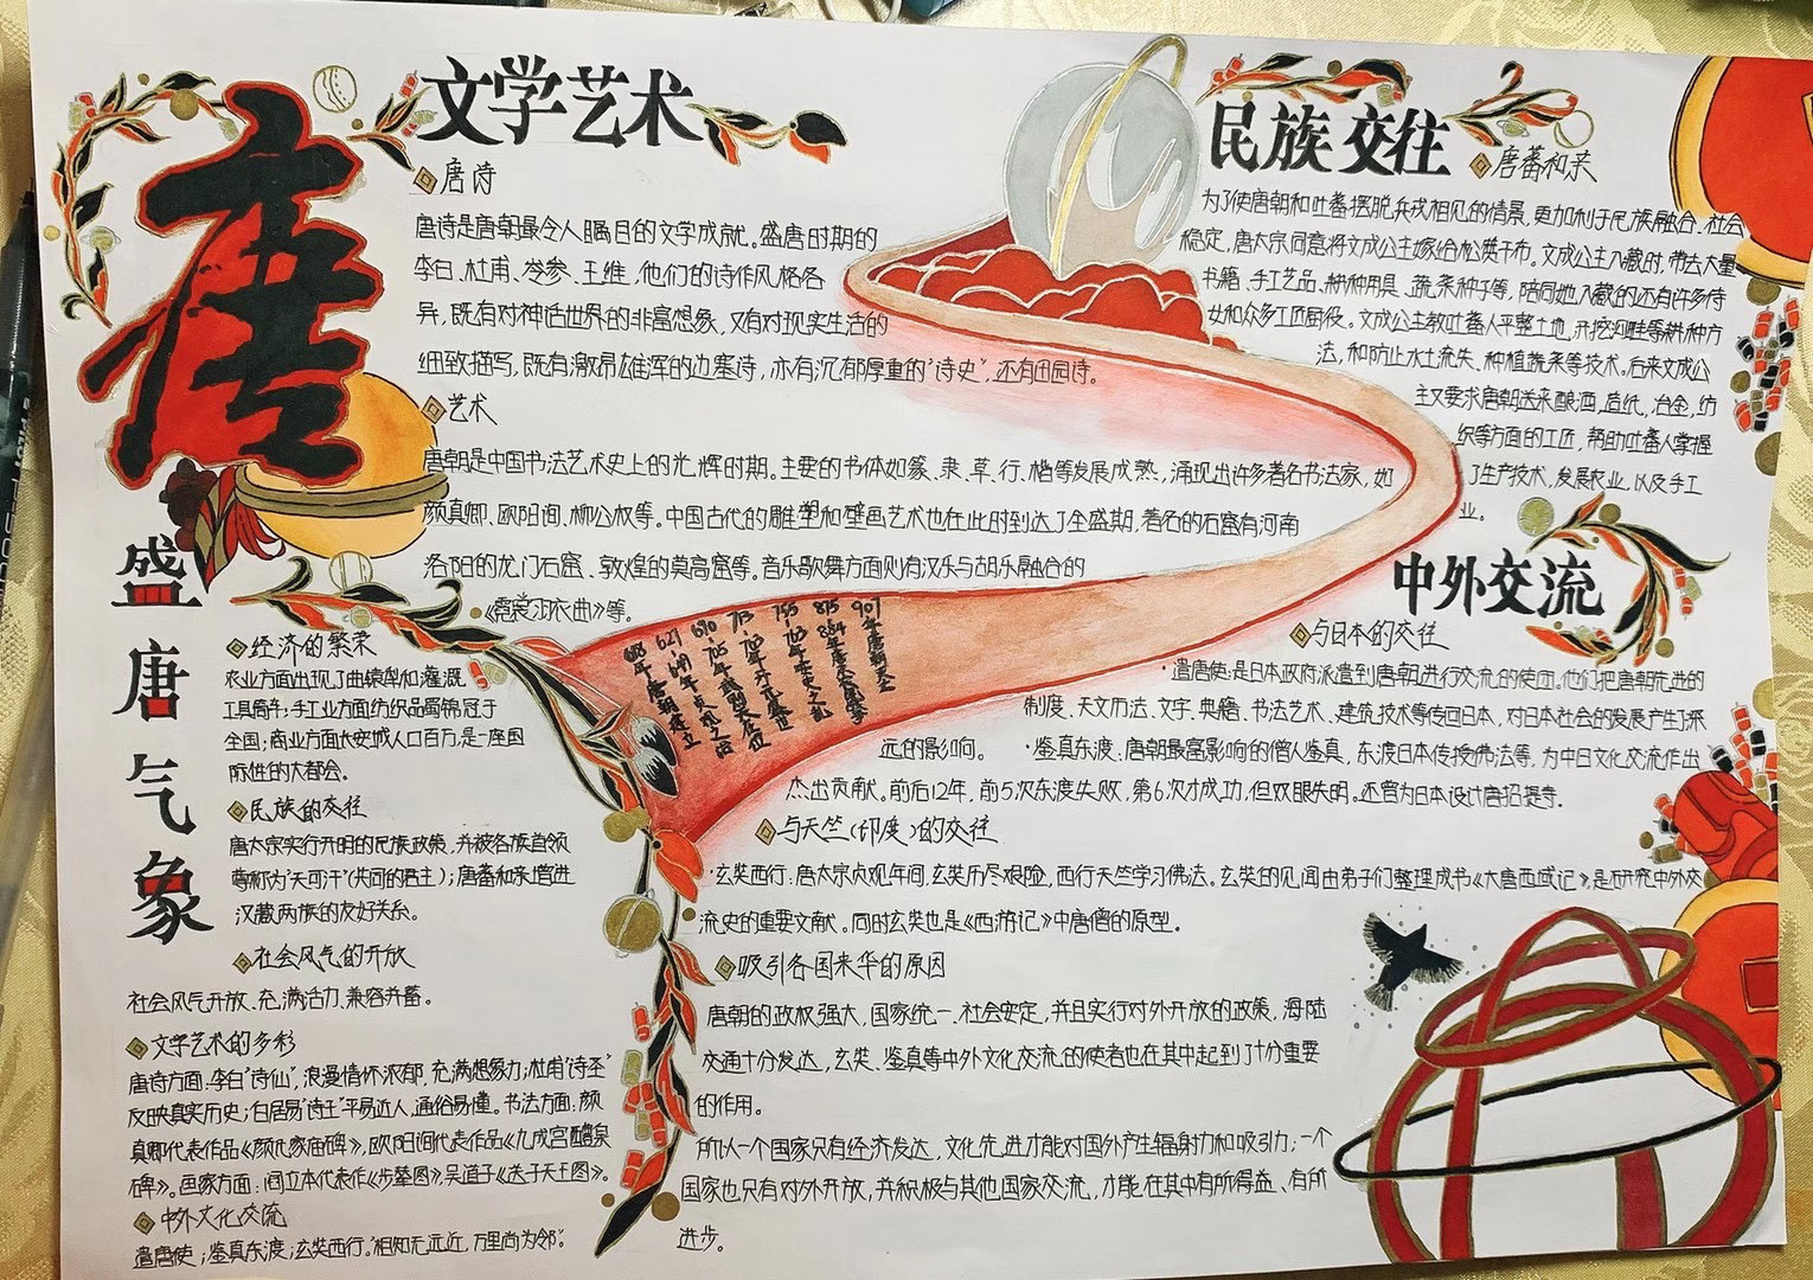 唐
盛唐气象
文学艺术
唐诗
唐诗是唐朝最令人瞩目的文学成就。盛唐时期的
李白、杜甫、岑参、王维,他们的诗作风格各
异,既有对神话世界的非富想象,又有对现实生活的
细致描写,既有激昂雄浑的边塞诗,亦有沉郁厚重的“诗史”,还有田园诗。
艺术
唐朝是中国书法艺术史上的光辉时期。主要的书体如篆、隶、草、行、楷等发展成熟,涌现出许多著名书法家,如
颜真卿、欧阳询、柳公权等。中国古代的雕塑和壁画艺术也在此时到达了全盛期,著名的石窟有河南
洛阳的龙门石窟、敦煌的莫高窟等。音乐歌舞方面则有汉乐与胡乐融合的
《霓裳羽衣曲》等。
经济的繁荣
农业方面出现了曲辕犁和灌溉
工具筒车;手工业方面纺织品蜀锦冠于
全国;商业方面长安城人口百万,是一座国
际性的大都会。
民族的交往
唐太宗实行开明的民族政策,并被各族首领
尊称为“天可汗”(共同的君主);唐蕃和亲增进
汉藏两族的友好关系。
社会风气的开放
社会风气开放、充满活力、兼容并蓄。
文学艺术的多彩
唐诗方面:李白“诗仙”,浪漫情怀浓郁,充满想象力;杜甫“诗圣”
反映真实历史;白居易“诗王”平易近人,通俗易懂。书法方面:颜
真卿代表作品《颜氏家庙碑》,欧阳询代表作品《九成宫醴泉
碑》。画家方面:阎立本代表作《步辇图》,吴道子《送子天王图》。
中外文化交流
遣唐使;鉴真东渡;玄奘西行。“相知无远近,万里尚为邻”。
618年唐朝建立
627-649年贞观之治
690-705年武则天在位
713-
755-763年安史之乱
875-884年
907年唐朝灭亡
民族交往
唐蕃和亲
为了使唐朝和吐蕃摆脱兵戎相见的情景,更加利于民族融合、社会
稳定,唐太宗同意将文成公主嫁给松赞干布。文成公主入藏时,带去大量
书籍、手工艺品、耕种用具、蔬菜种子等,陪同她入藏的还有许多侍
女和众多工匠厨役。文成公主教吐蕃人平整土地,开挖沟畦等耕种方
法,和防止水土流失、种植蔬菜等技术。后来文成公
主又要求唐朝送来酿酒、造纸、冶金、纺
织等方面的工匠,帮助吐蕃人掌握
了生产技术,发展农业,以及手工
业。
中外交流
与日本的交往
·遣唐使:是日本政府派遣到唐朝进行交流的使团。他们把唐朝先进的
制度、天文历法、文字、典籍、书法艺术、建筑技术等传回日本,对日本社会的发展产生了深
远的影响。 ·鉴真东渡:唐朝最富影响的僧人鉴真,东渡日本传授佛法等,为中日文化交流作出
杰出贡献。前后12年,前5次东渡失败,第6次才成功,但双眼失明。还曾为日本设计唐招提寺.
与天竺(印度)的交往
·玄奘西行:唐太宗贞观年间,玄奘历尽艰险,西行天竺学习佛法。玄奘的见闻由弟子们整理成书《大唐西域记》,是研究中外交
流史的重要文献。同时玄奘也是《西游记》中唐僧的原型。
吸引各国来华的原因
唐朝的政权强大,国家统一、社会安定,并且实行对外开放的政策,海陆
交通十分发达,玄奘、鉴真等中外文化交流的使者也在其中起到了十分重要
的作用。
所以一个国家只有经济发达,文化先进才能对国外产生辐射力和吸引力;一个
国家也只有对外开放,并积极与其他国家交流,才能在其中有所得益、有所
进步。